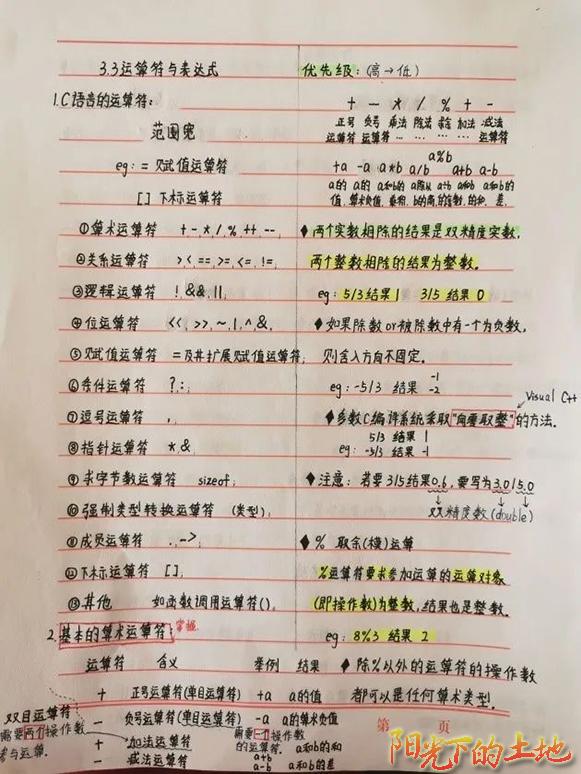 3.3运算符与表达式
1.C语言的运算符：
范围宽
eg：= 赋值运算符
[ ] 下标运算符
①算术运算符 + - * / % ++ --;
②关系运算符 > < == >= <= !=;
③逻辑运算符 ! && ||;
④位运算符 <<, >>, ~ | ^ &.
⑤赋值运算符 =及其扩展赋值运算符;
⑥条件运算符 ? : ;
⑦逗号运算符 ,
⑧指针运算符 *, &
⑨求字节数运算符 sizeof;
⑩强制类型转换运算符 (类型);
⑪成员运算符 . ->;
⑫下标运算符 [ ];
⑬其他 如函数调用运算符();
2.基本的算术运算符：掌握
运算符 含义 举例 结果
+ 正号运算符(单目运算符) +a a的值
- 负号运算符(单目运算符) -a a的算术负值
+ 加法运算符 a+b a和b的和
- 减法运算符 a-b a和b的差
双目运算符
需要两个操作数
参与运算.
需要一个操作数
的运算符.
优先级：(高→低)
+ - * / % + -
正号 负号 乘法 除法 求余 加法 减法
运算符 运算符 … … … … 运算符
a%b
+a -a a*b a/b a+b a-b
♦两个实数相除的结果是双精度实数.
两个整数相除的结果为整数.
eg：5/3结果1 3/5 结果 0
♦如果除数or被除数中有一个为负数,
则舍入方向不固定.
eg：-5/3 结果 -1
-2
Visual C++
♦多数C编译系统采取"向零取整"的方法.
5/3 结果 1
eg：-5/3 结果 -1
♦注意：若要3/5结果0.6, 要写为3.0/5.0
双精度数(double)
♦% 取余(模)运算
%运算符要求参加运算的运算对象
(即操作数)为整数, 结果也是整数.
eg：8%3 结果 2
♦除%以外的运算符的操作数
都可以是任何算术类型.
第 页
阳光下的土地